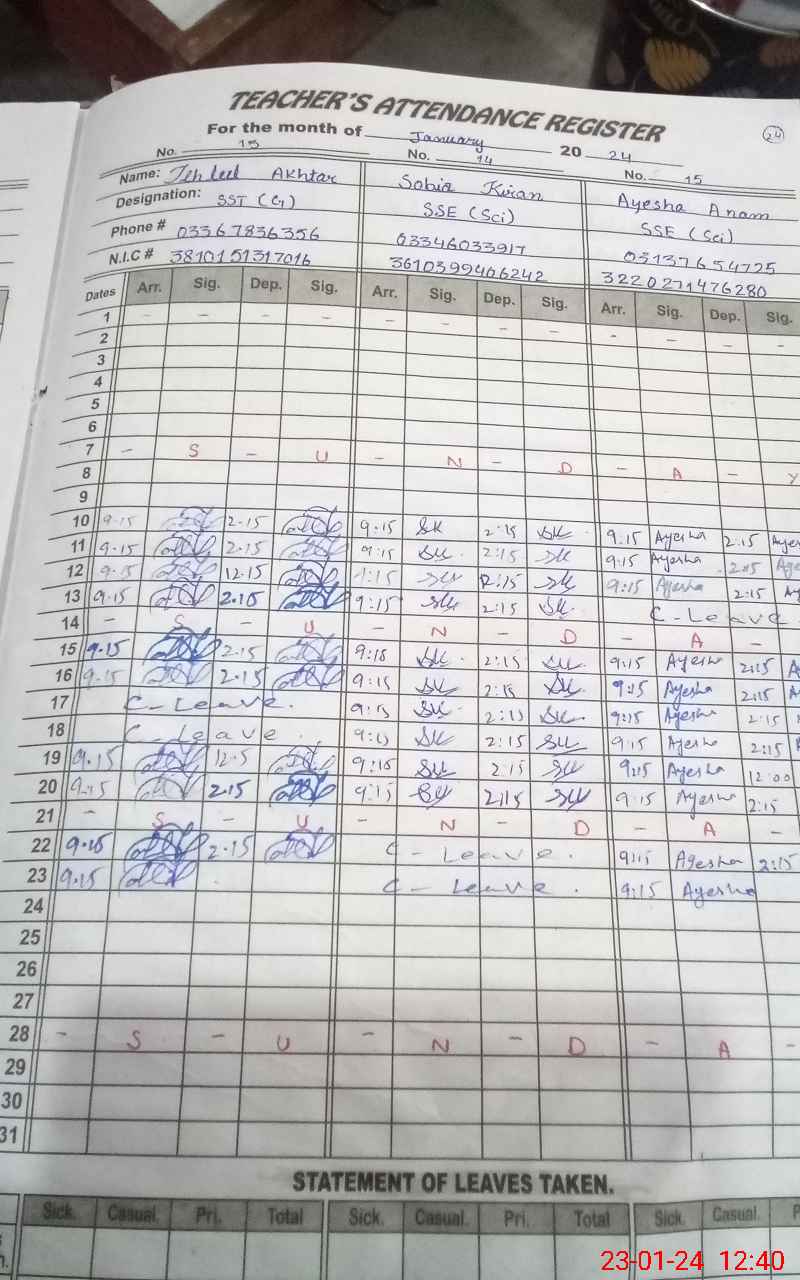 TEACHER'S ATTENDANCE REGISTER
24
For the month of January 20 24
No. 13 No. 14 No. 15
Name: Akhtar Sobia Kiran Ayesha Anam
Designation: SST (G) SSE (Sci) SSE (Sci)
Phone # 03367836356 03346033917 03137654725
N.I.C # 3810151317016 3610399406242 3220271476280
Dates Arr. Sig. Dep. Sig. Arr. Sig. Dep. Sig. Arr. Sig. Dep. Sig.
1 - - - - - - - - - - - -
2
3
4
5
6
7 - S - U - N - D - A - Y
8
9
10 9.15 2.15 9:15 SK 2:15 SK 9:15 Ayesha 2:15 Ayes
11 9.15 2.15 9:15 SK 2:15 SK 9:15 Ayesha 2:15 Aye
12 9.15 12.15 9:15 SK 12:15 SK 9:15 Ayesha 2:15 Ay
13 9.15 2.15 9:15 SK 2:15 SK C-Leave
14 - S - U - N - D - A -
15 9.15 2.15 9:15 SK 2:15 SK 9:15 Ayesha 2:15 A
16 9.15 2.15 9:15 SK 2:15 SK 9:15 Ayesha 2:15 A
17 C-Leave. 9:15 SK 2:15 SK 9:15 Ayesha 2:15
18 C-Leave. 9:15 SK 2:15 SK 9:15 Ayesha 2:15
19 9.15 12.5 9:15 SK 2:15 SK 9:15 Ayesha 12:00
20 9.15 2.15 9:15 SK 2:15 SK 9:15 Ayesha 2:15
21 - S - U - N - D - A -
22 9.15 2.15 C-Leave. 9:15 Ayesha 2:15
23 9.15 C-Leave. 9:15 Ayesha
24
25
26
27
28 - S - U - N - D - A -
29
30
31
STATEMENT OF LEAVES TAKEN.
Sick. Casual. Pri. Total Sick. Casual. Pri. Total Sick. Casual. P
23-01-24 12:40